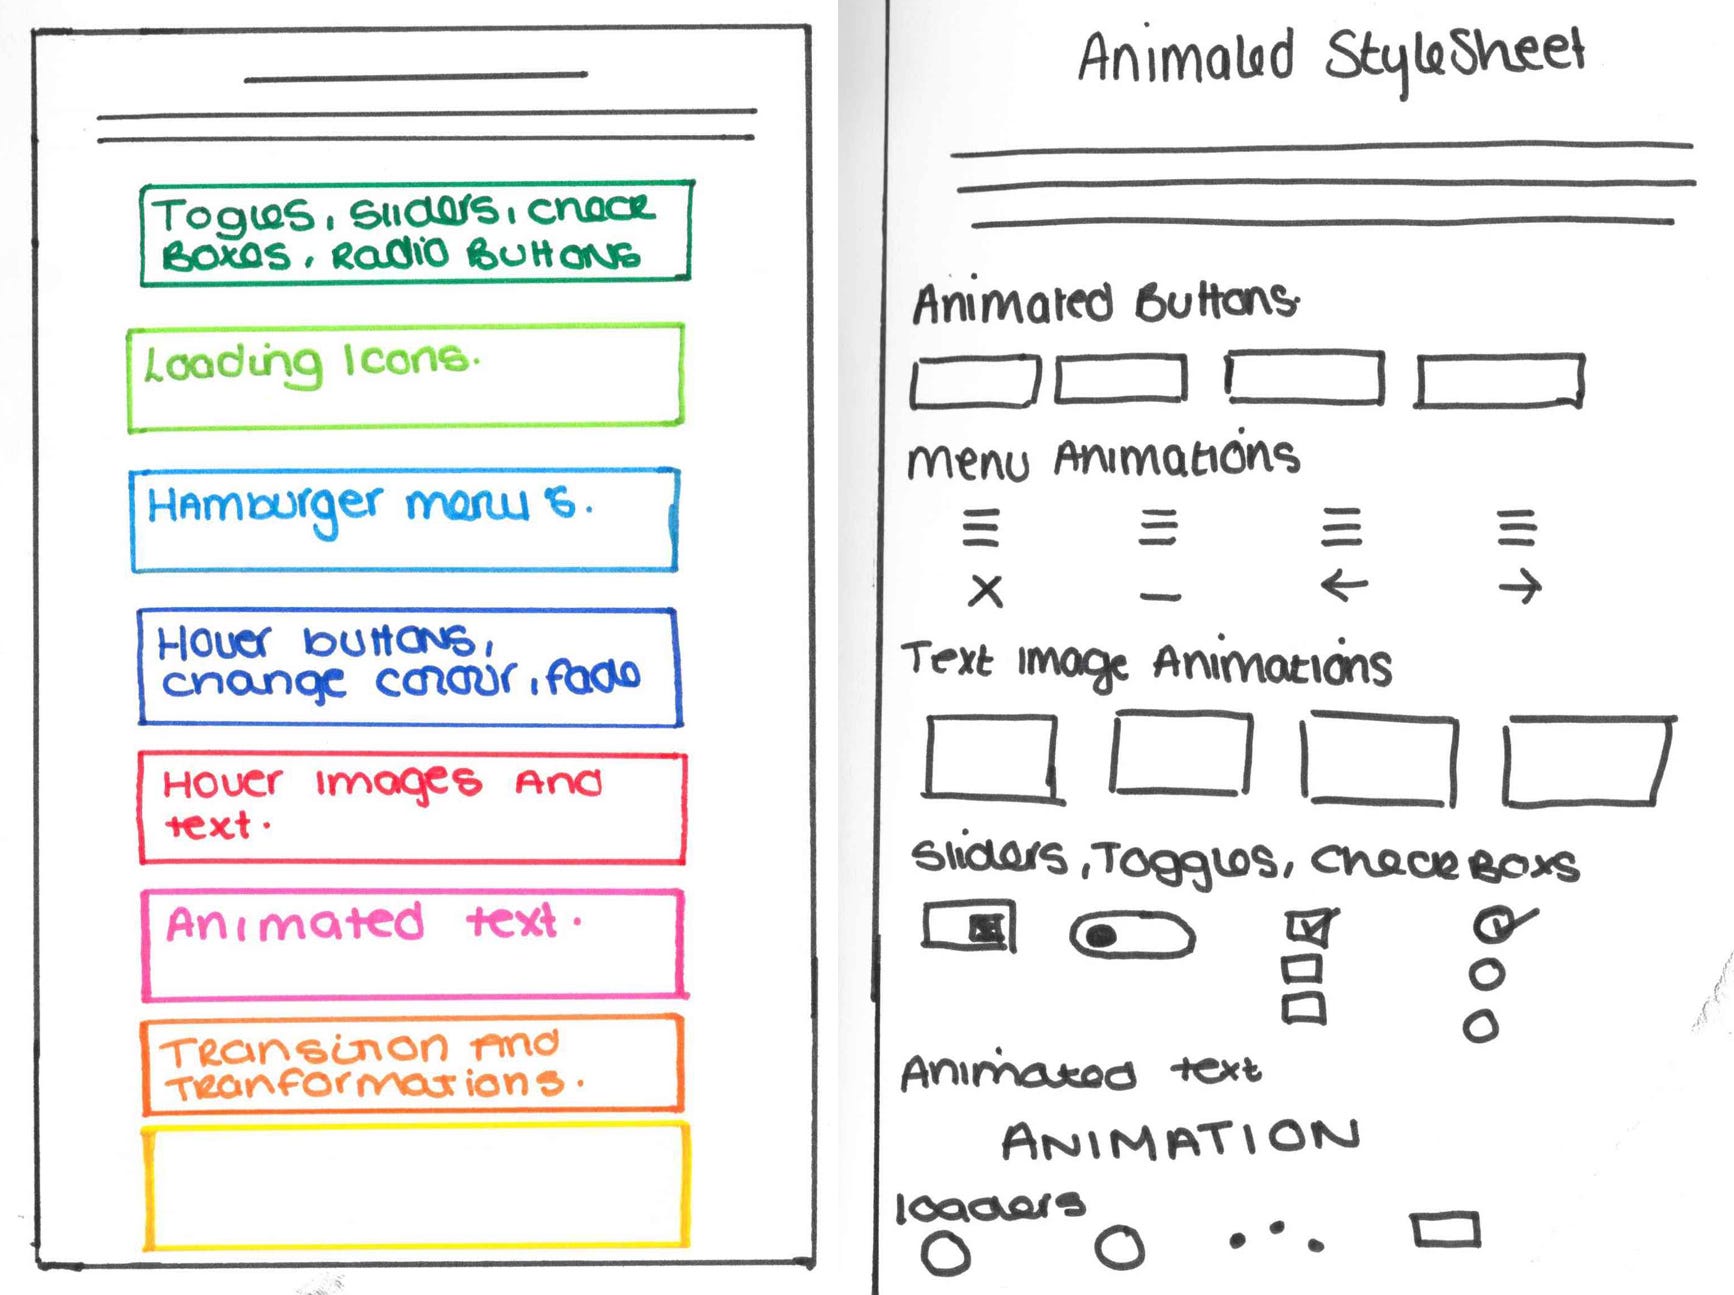 Togles, Sliders, Check
Boxes, Radio Buttons
Loading Icons.
Hamburger menu's.
Hover buttons,
change colour, fade
Hover Images And
text.
Animated text.
Transition And
Tranformations.
Animated StyleSheet
Animated Buttons.
Menu Animations
Text Image Animations
Sliders, Toggles, Check Boxs
Animated text
ANIMATION
loaders